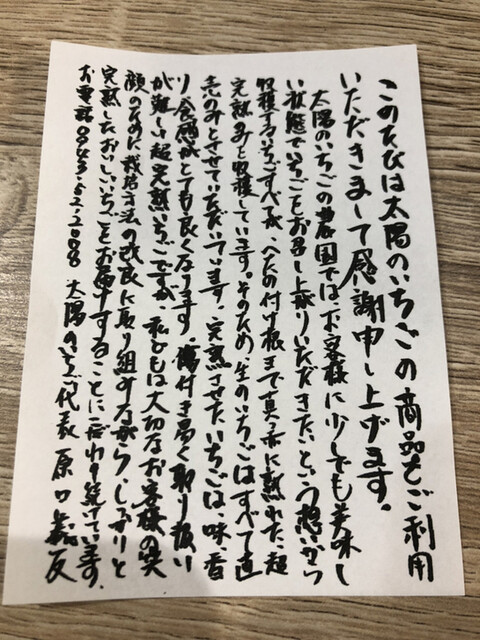 このたびは太陽のいちごの商品をご利用
いただきまして感謝申し上げます。
太陽のいちごの農園では、お客様に少しでも美味し
い状態でいちごをお召し上がりいただきたいという想いから
収穫するいちごすべてが、へたの付け根まで真っ赤に熟れた超
完熟のみを収穫しています。そのため、生のいちごはすべて直
売のみとさせていただいています。完熟させたいちごは、味、香
り、食感がとても良くなります。傷付き易く取り扱い
が難しい超完熟いちごですが、私どもは大切なお客様の笑
顔のために栽培方法の改良に取り組みながら、しっかりと
完熟したおいしいいちごをお届けすることにこだわり続けています。
お電話 0943-52-2088 太陽のいちご代表 原口